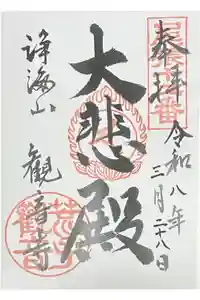 奉拝
令和八年
三月二十八日
大悲殿
浄海山
観音寺